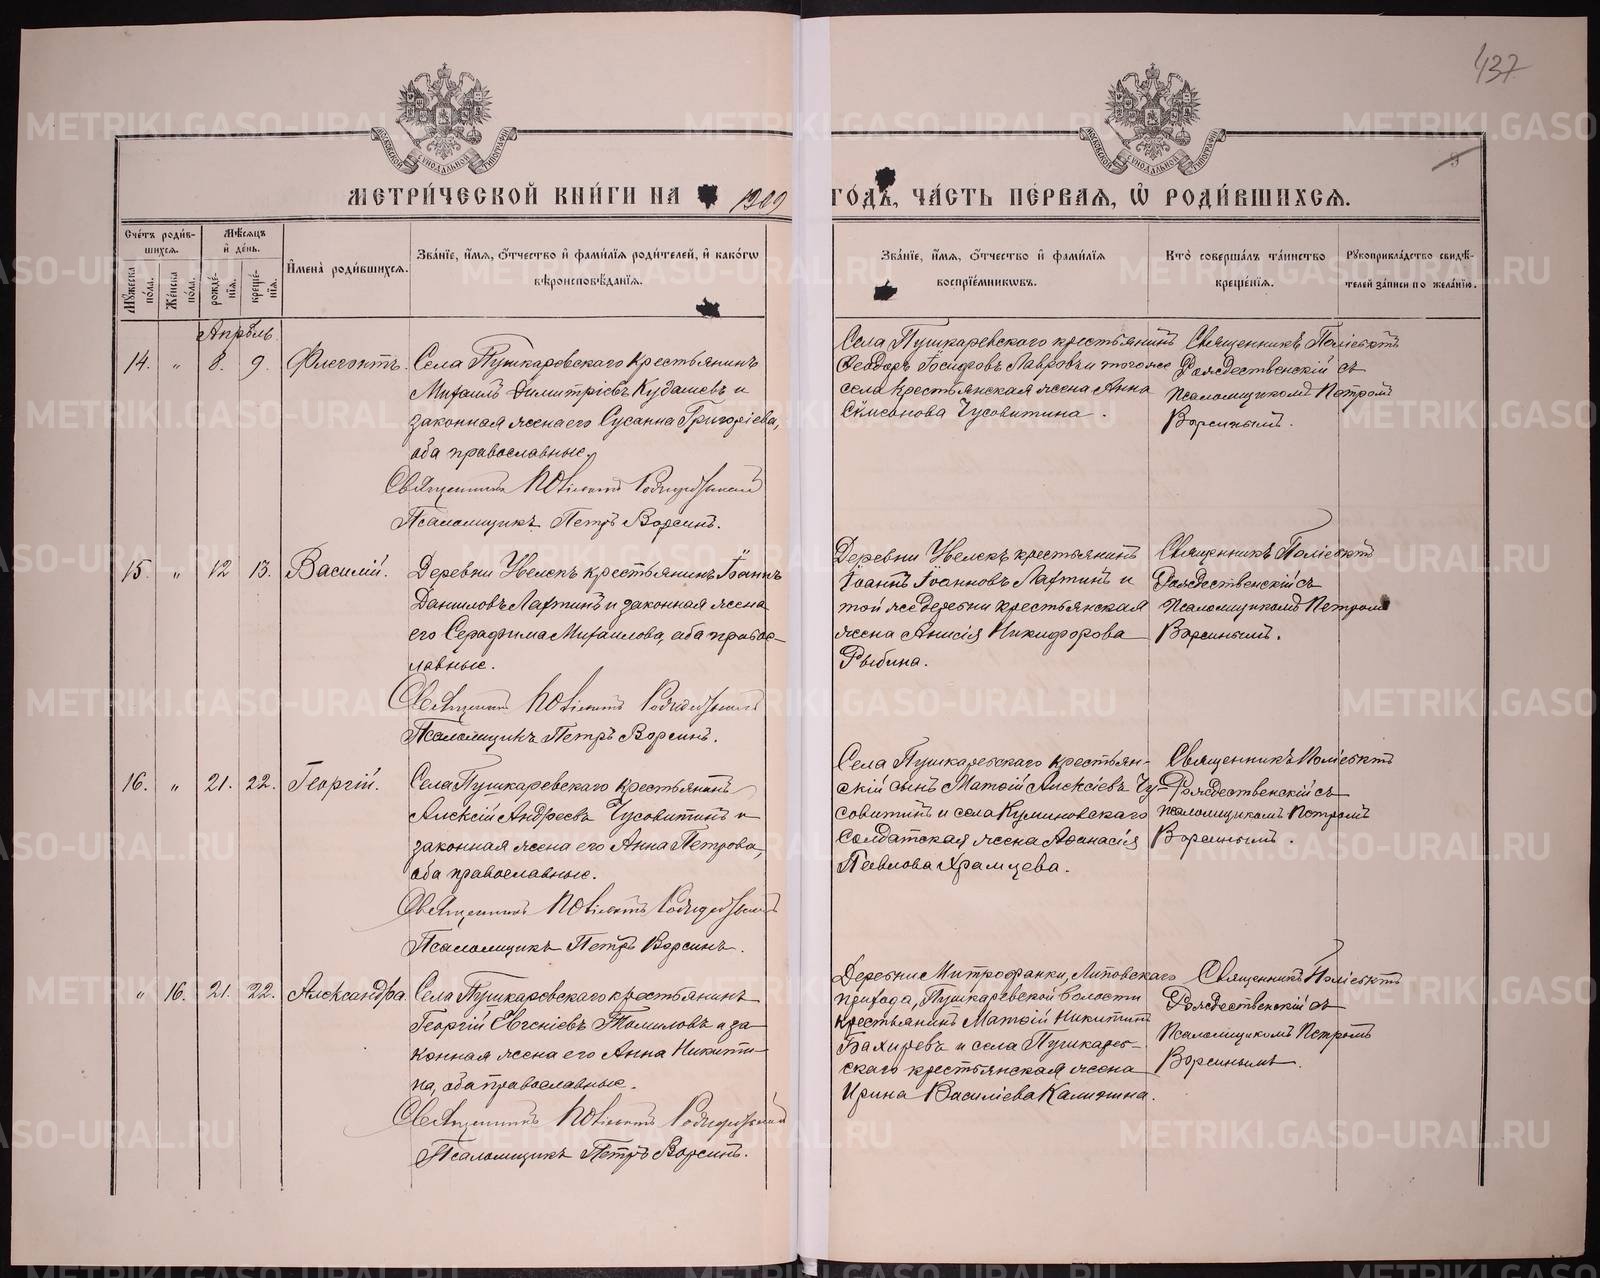 437
МЕТРИЧЕСКОЙ КНИГИ НА 1909 ГОДЪ, ЧАСТЬ ПЕРВАЯ, Ѡ РОДИВШИХСЯ.
Счетъ родив-
шихся.
Мужеска пола.
Женска пола.
Мѣсяцъ
и день.
рожде-
нія.
креще-
нія.
Имена родившихся.
Званіе, имя, отчество и фамилія родителей, и какого
вѣроисповѣданія.
Званіе, имя, отчество и фамилія
воспріемниковъ.
Кто совершалъ таинство
крещенія.
Рукоприкладство свидѣ-
телей записи по желанію.
Апрѣль
14. „ 8. 9. Флегонтъ.
Села Пушкаревскаго крестьянинъ
Михаилъ Димитріевъ Кудашевъ и
законная жена его Сусанна Григоріева,
оба православные.
Священникъ Поліевктъ Рождественскій
Псаломщикъ Петръ Ворсинъ.
Села Пушкаревскаго крестьянинъ
Феодоръ Іосифовъ Лавровъ и тогоже
села крестьянская жена Анна
Сѵмеонова Чусовитина.
Священникъ Поліевктъ
Рождественскій съ
псаломщикомъ Петромъ
Ворсинымъ.
15. „ 12 13. Василій.
Деревни Увелекъ крестьянинъ Іоаннъ
Даниловъ Лахтинъ и законная жена
его Серафима Михаилова, оба правос-
лавные.
Священникъ Поліевктъ Рождественскій
Псаломщикъ Петръ Ворсинъ.
Деревни Увелекъ крестьянинъ
Іоаннъ Іоанновъ Лахтинъ и
той же деревни крестьянская
жена Анисія Никифорова
Рыбина.
Священникъ Поліевктъ
Рождественскій съ
псаломщикомъ Петромъ
Ворсинымъ.
16. „ 21. 22. Георгій.
Села Пушкаревскаго крестьянинъ
Алексій Андреевъ Чусовитинъ и
законная жена его Анна Петрова,
оба православные.
Священникъ Поліевктъ Рождественскій
Псаломщикъ Петръ Ворсинъ.
Села Пушкаревскаго крестьян-
скій сынъ Матѳій Алексіевъ Чу-
совитинъ и села Куминовскаго
солдатская жена Аѳанасія
Павлова Храмцева.
Священникъ Поліевктъ
Рождественскій съ
псаломщикомъ Петромъ
Ворсинымъ.
„ 16. 21. 22. Александра.
Села Пушкаревскаго крестьянинъ
Георгій Евгеніевъ Томиловъ и за
конная жена его Анна Никити-
на, оба православные.
Священникъ Поліевктъ Рождественскій
Псаломщикъ Петръ Ворсинъ.
Деревни Митрофанки, Липовскаго
прихода, Пушкаревской волости
крестьянинъ Матѳій Никитинъ
Бахиревъ и села Пушкарев-
скаго крестьянская жена
Ирина Василіева Калинина.
Священникъ Поліевктъ
Рождественскій съ
Псаломщикомъ Петромъ
Ворсинымъ.
METRIKI.GASO-URAL.RU